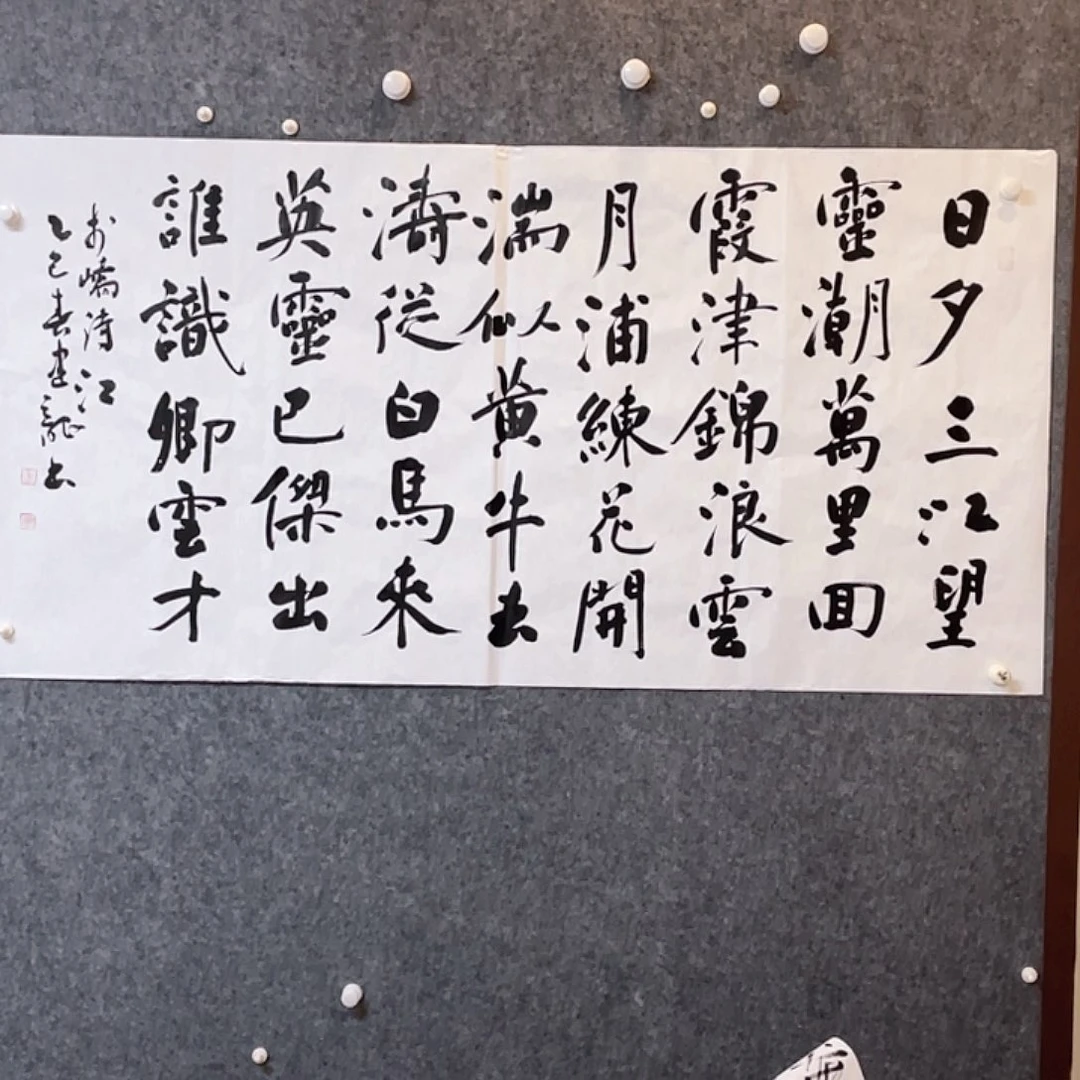 日夕三江望
靈潮萬里回
霞津錦浪雲
月浦練花開
湍似黃牛去
濤從白馬來
英靈已傑出
誰識卿雲才
李嶠詩江
乙巳春建龍書